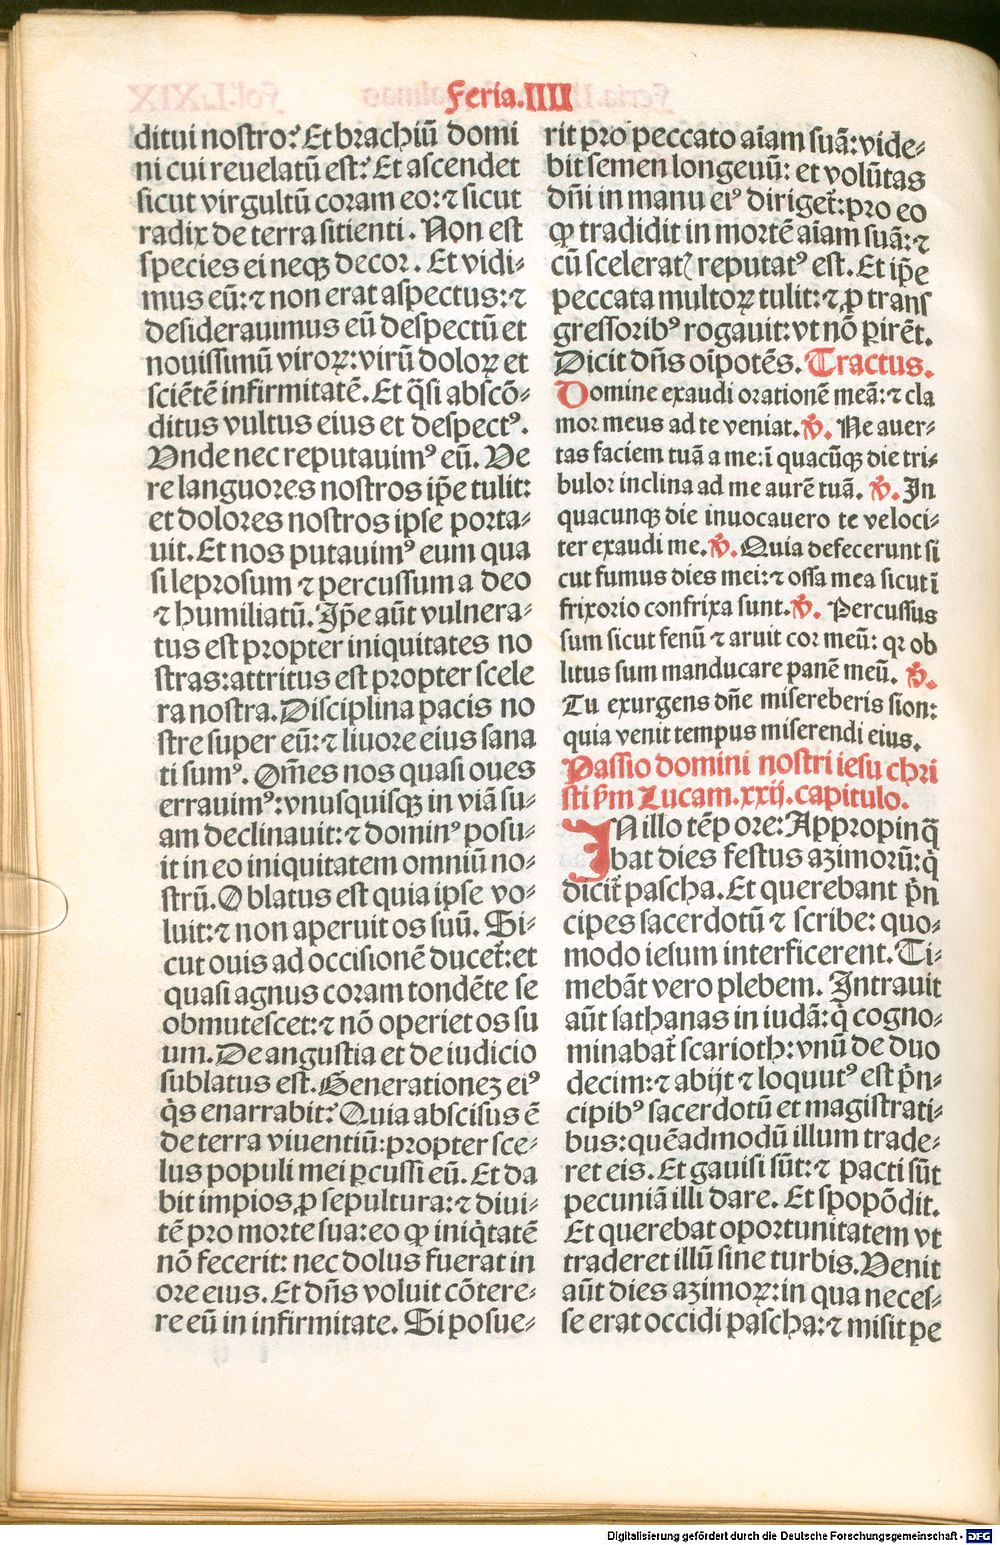 Feria.IIII
ditui nostro? Et brachiū domi
ni cui reuelatū est? Et ascendet
sicut virgultū coram eo: ⁊ sicut
radix de terra sitienti. Non est
species ei neqꝫ decor. Et vidi-
mus eū: ⁊ non erat aspectus: ⁊
desiderauimus eū despectū et
nouissimū viroꝝ: virū doloꝝ et
sciētē infirmitatē. Et q̄si abscō-
ditus vultus eius et despectꝰ.
Vnde nec reputauimꝰ eū. Ve
re languores nostros ip̄e tulit:
et dolores nostros ipse porta-
uit. Et nos putauimꝰ eum qua
si leprosum ⁊ percussum a deo
⁊ humiliatū. Ip̄e aūt vulnera-
tus est propter iniquitates no
stras: attritus est propter scele
ra nostra. Disciplina pacis no
stre super eū: ⁊ liuore eius sana
ti sumꝰ. Om̄es nos quasi oues
errauimꝰ: vnusquisqꝫ in viā su-
am declinauit: ⁊ dominꝰ posu-
it in eo iniquitatem omniū no-
strū. Oblatus est quia ipse vo-
luit: ⁊ non aperuit os suū. Si-
cut ouis ad occisionē ducet̄: et
quasi agnus coram tondēte se
obmutescet: ⁊ nō operiet os su
um. De angustia et de iudicio
sublatus est. Generationeꝫ eiꝰ
q̇s enarrabit? Quia abscisus ē
de terra viuentiū: propter sce-
lus populi mei ꝑcussi eū. Et da
bit impios ꝓ sepultura: ⁊ diui-
tē pro morte sua: eo ꝙ iniq̇tatē
nō fecerit: nec dolus fuerat in
ore eius. Et dn̄s voluit cōtere-
re eū in infirmitate. Si posue-
rit pro peccato aīam suā: vide-
bit semen longeuū: et volūtas
dn̄i in manu eiꝰ diriget̄: pro eo
ꝙ tradidit in mortē aīam suā: ⁊
cū sceleratꝭ reputatꝰ est. Et ip̄e
peccata multoꝝ tulit: ⁊ ꝓ trans
gressoribꝰ rogauit: vt nō ꝑirēt.
Dicit dn̄s oīpotēs. Tractus.
Domine exaudi orationē meā: ⁊ cla
mor meus ad te veniat. ℣. Ne auer-
tas faciem tuā a me: ī quacūqꝫ die tri-
bulor inclina ad me aurē tuā. ℣. In
quacunqꝫ die inuocauero te veloci-
ter exaudi me. ℣. Quia defecerunt si
cut fumus dies mei: ⁊ ossa mea sicut ī
frixorio confrixa sunt. ℣. Percussus
sum sicut fenū ⁊ aruit cor meū: qꝛ ob
litus sum manducare panē meū. ℣.
Tu exurgens dn̄e misereberis sion:
quia venit tempus miserendi eius.
Passio domini nostri iesu chri
sti ẜm Lucam.xxij.capitulo.
IN illo tēpore: Appropinq̄
bat dies festus azimorū: q̇
dicit̄ pascha. Et querebant pͥn
cipes sacerdotū ⁊ scribe: quo-
modo iesum interficerent. Ti-
mebāt vero plebem. Intrauit
aūt sathanas in iudā: q̇ cogno-
minabat̄ scarioth: vnū de duo
decim: ⁊ abijt ⁊ loquutꝰ est pͥn-
cipibꝰ sacerdotū et magistrati-
bus: quēadmodū illum trade-
ret eis. Et gauisi sūt: ⁊ pacti sūt
pecuniā illi dare. Et spopōdit.
Et querebat oportunitatem vt
traderet illū sine turbis. Venit
aūt dies azimoꝝ: in qua neces-
se erat occidi pascha: ⁊ misit pe
Digitalisierung gefördert durch die Deutsche Forschungsgemeinschaft - DFG